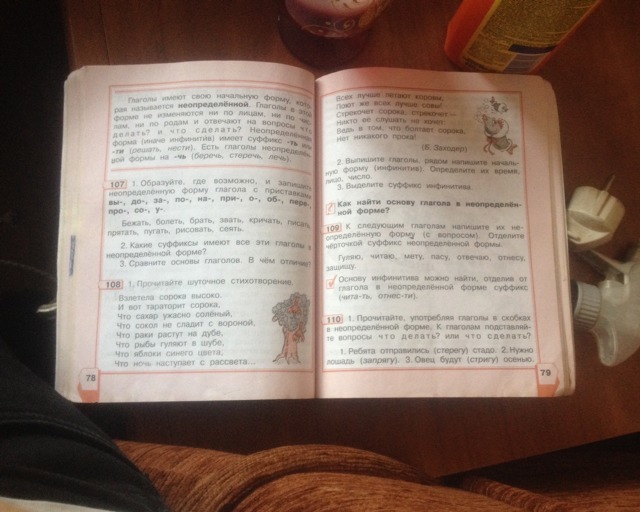 Глаголы имеют свою начальную форму, кото-
рая называется неопределённой. Глаголы в этой
форме не изменяются ни по лицам, ни по чис-
лам, ни по родам и отвечают на вопросы что
делать? и что сделать? Неопределённая
форма (иначе инфинитив) имеет суффикс -ть или
-ти (решать, нести). Есть глаголы неопределён-
вой формы на -чь (беречь, стеречь, лечь).
107 1. Образуйте, где возможно, и запишите
неопределённую форму глагола с приставками
вы-, до-, за-, по-, на-, при-, о-, об-, пере-,
про-, со-, у-.
Бежать, болеть, брать, звать, кричать, писать,
прятать, пугать, рисовать, сеять.
2. Какие суффиксы имеют все эти глаголы в
неопределённой форме?
3. Сравните основы глаголов. В чём отличие?
108 1. Прочитайте шуточное стихотворение.
Взлетела сорока высоко.
И вот тараторит сорока,
Что сахар ужасно солёный,
Что сокол не сладит с вороной,
Что раки растут на дубе,
Что рыбы гуляют в шубе,
Что яблоки синего цвета,
Что ночь наступает с рассвета...
78
Всех лучше летают коровы,
Поют же всех лучше совы!
Стрекочет сорока, стрекочет —
Никто её слушать не хочет:
Ведь в том, что болтает сорока,
Нет никакого прока!
(Б. Заходер)
2. Выпишите глаголы, рядом напишите началь-
ную форму (инфинитив). Определите их время,
лицо, число.
3. Выделите суффикс инфинитива.
Как найти основу глагола в неопределён-
ной форме?
109 К следующим глаголам напишите их не-
определённую форму (с вопросом). Отделите
чёрточкой суффикс неопределённой формы.
Гуляю, читаю, мету, пасу, отвечаю, отнесу,
защищу.
Основу инфинитива можно найти, отделив от
глагола в неопределённой форме суффикс
(чита-ть, отнес-ти).
110 1. Прочитайте, употребляя глаголы в скобках
в неопределённой форме. К глаголам подставляй-
те вопросы что делать? или что сделать?
1. Ребята отправились (стерегу) стадо. 2. Нужно
лошадь (запрягу). 3. Овец будут (стригу) осенью.
79